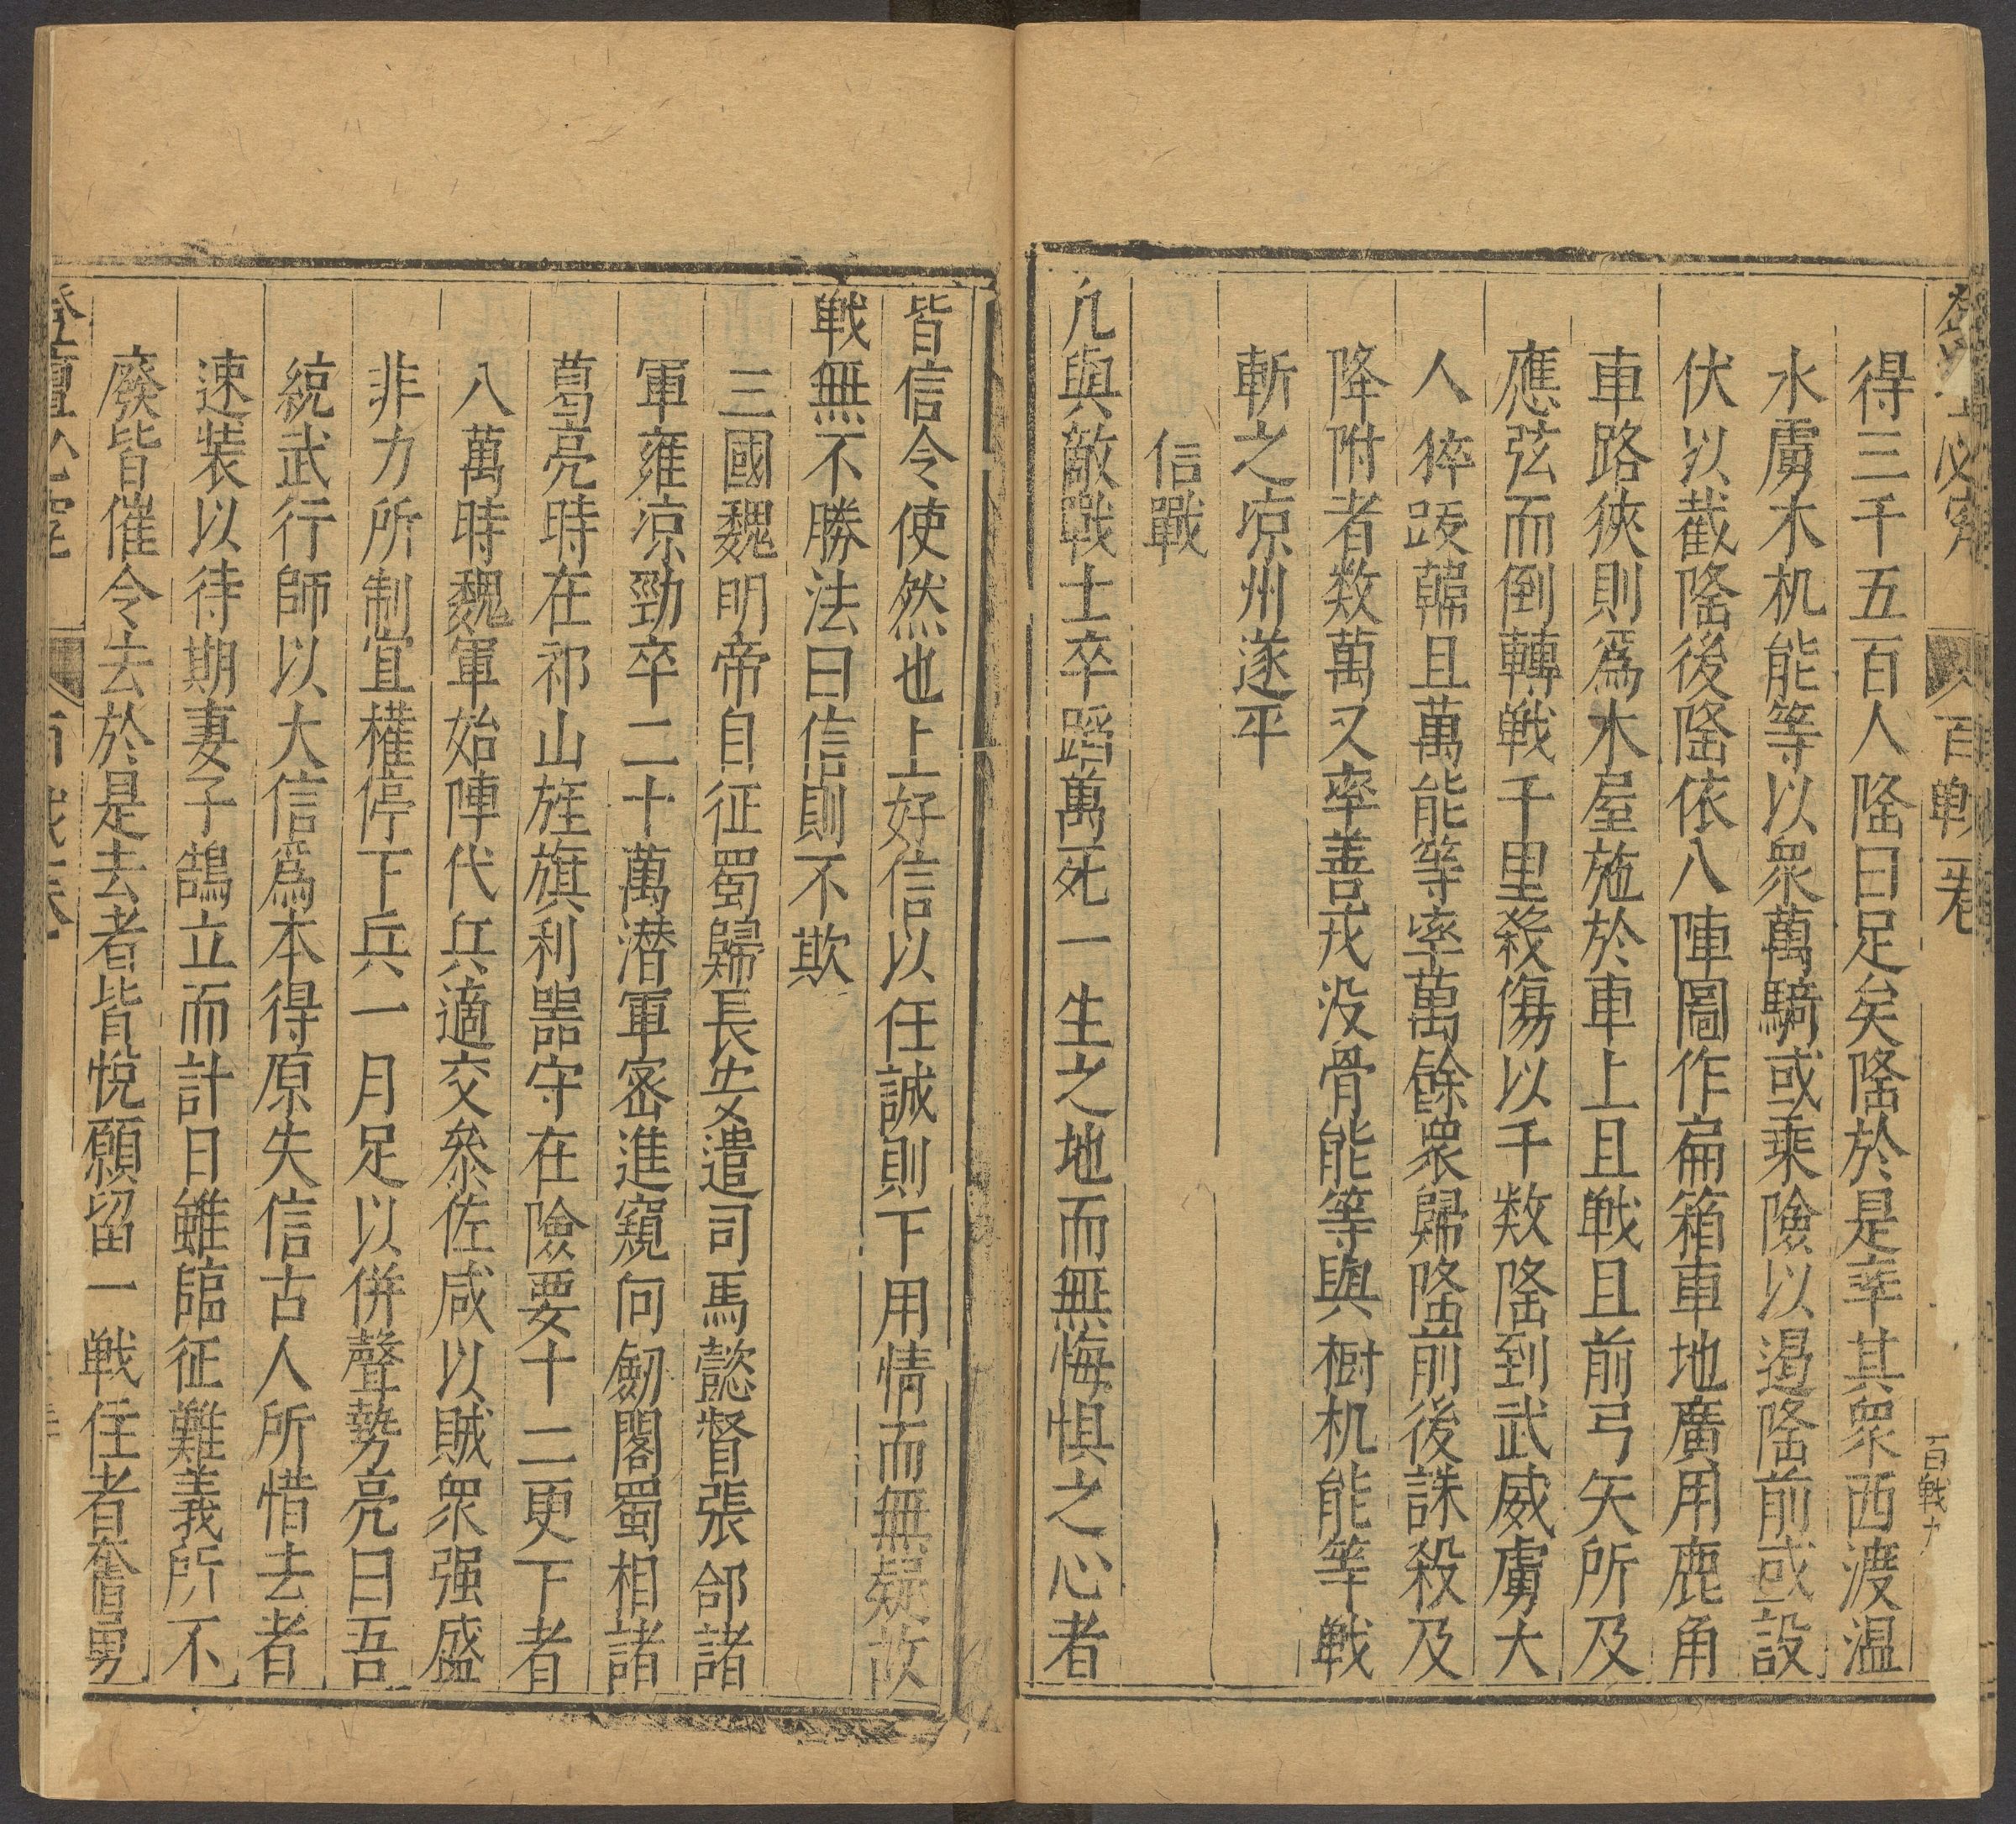 百戰一卷
百戰九
得三千五百人隆曰足矣隆於是率其衆西渡温
水虜木机能等以衆萬騎或乗險以遏隆前或設
伏以截隆後隆依八陣圖作扁箱車地廣用鹿角
車路狹則爲木屋施於車上且戦且前弓矢所及
應弦而倒轉戦千里殺傷以千数隆到武威虜大
人猝跋韓且萬能等率萬餘衆歸隆前後誅殺及
降附者数萬又率善戎没骨能等與樹机能等戦
斬之凉州遂平
信戰
凡與敵戰士卒蹈萬死一生之地而無悔惧之心者
皆信令使然也上好信以任誠則下用情而無疑故
戦無不勝法曰信則不欺
三國魏明帝自征蜀歸長安遣司馬懿督張郃諸
軍雍凉勁卒二十萬潜軍宻進窺向劒閣蜀相諸
葛亮時在祁山旌旗利噐守在險要十二更下者
八萬時魏軍始陣代兵適交叅佐咸以賊衆强盛
非力所制宜權停下兵一月足以併聲勢亮曰吾
統武行師以大信爲本得原失信古人所惜去者
速裝以待期妻子鵠立而計日雖臨征難義所不
廢皆催令去於是去者皆悅願留一戦住者奮勇
登壇必究